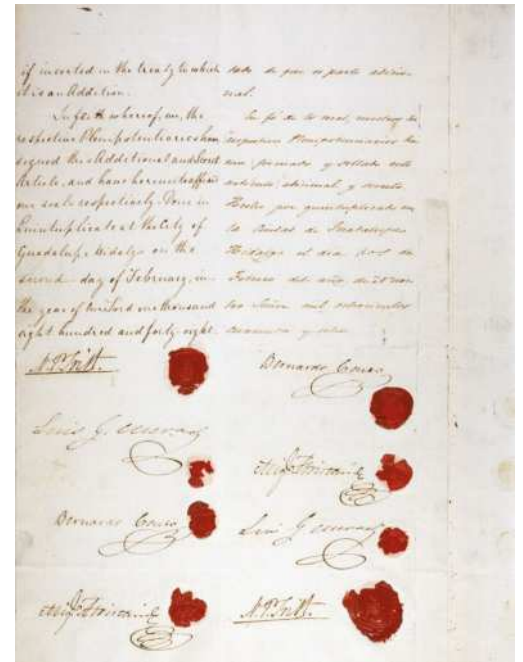 if inserted in the treaty to which
it is an Addition.
In faith whereof, we, the
respective Plenipotentiaries have
signed this Additional and Secret
Article, and have hereunto affixed
our seals respectively. Done in
Quintuplicate at the City of
Guadalupe Hidalgo on the
second day of February, in
the year of our Lord one thousand
eight hundred and forty eight.
de que es parte
En fé de lo cual, nosotros los
respectivos Plenipotenciarios
firmado y sellado este
articulo adicional y secreto
Hecho por quintuplicado en
la Ciudad de Guadalupe
Hidalgo el dia dos de
Febrero del año de
mil ochocientos
cuarenta y ocho
N. P. Trist.
Bernardo Couto
Luis G. Cuevas
Migl. Atristain
Bernardo Couto
Luis G. Cuevas
Migl. Atristain
N. P. Trist.